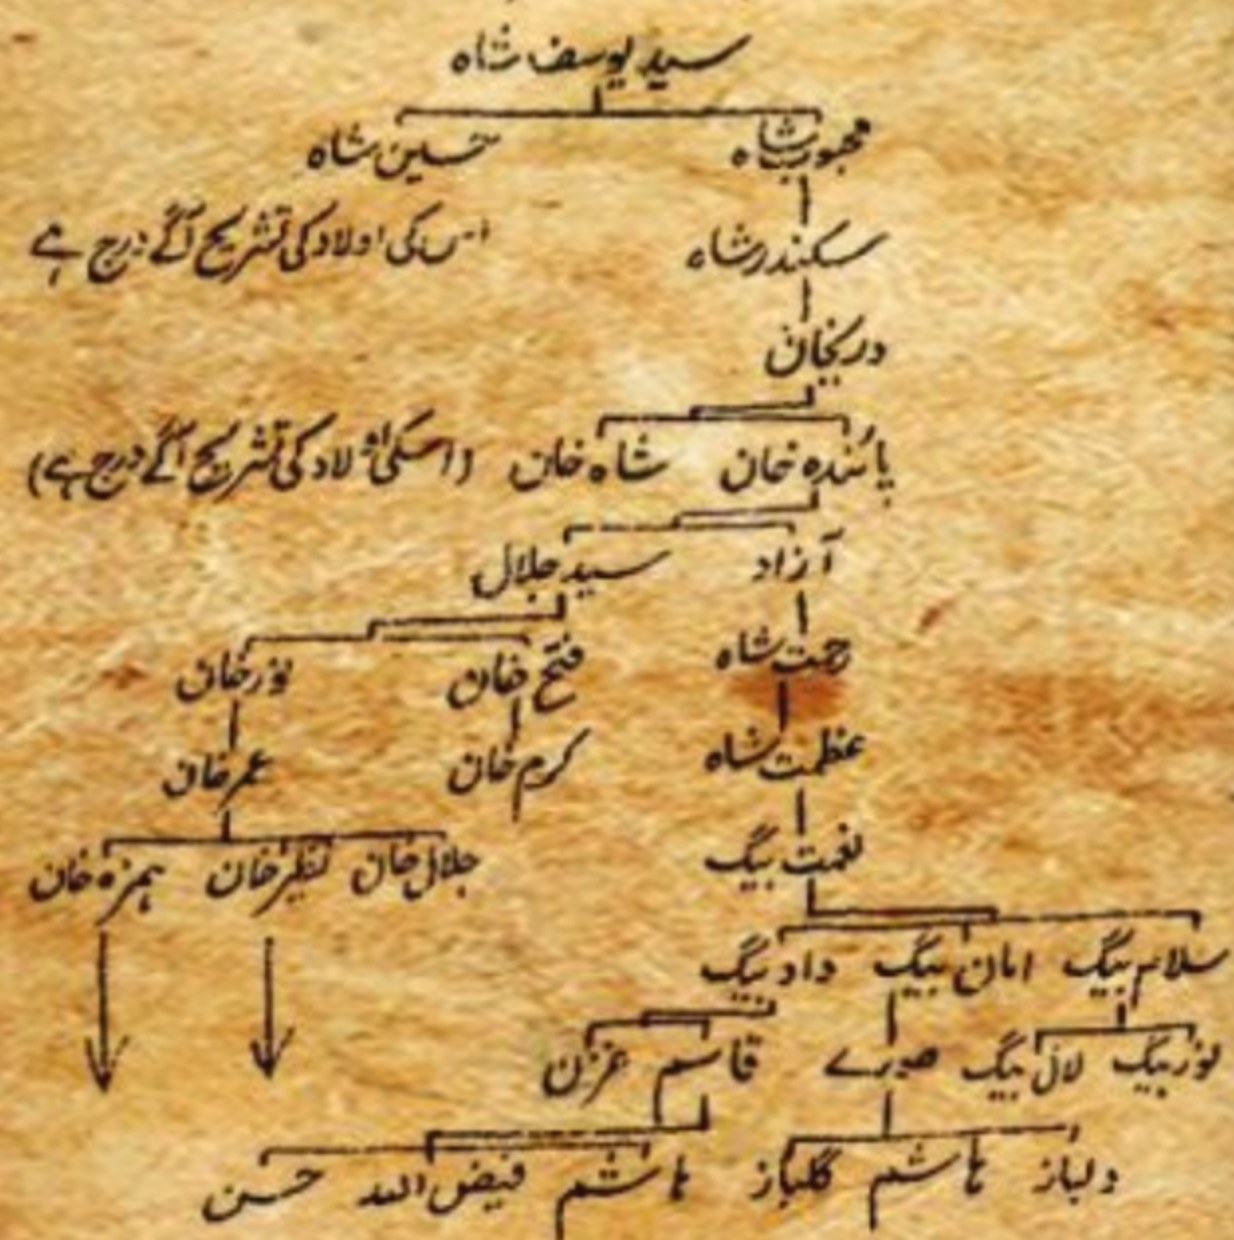 سید یوسف شاہ
محبوب شاہ حسین شاہ
سکندر شاہ اس کی اولاد کی تشریح آگے درج ہے
دریخان
پائندہ خان شاہ خان (اسکی اولاد کی تشریح آگے درج ہے)
آزاد سید جلال
رحمت شاہ فتح خان نور خان
عظمت شاہ کرم خان عمر خان
نعمت بیگ جلال خان نظیر خان ہمزہ خان
سلام بیگ امان بیگ داد بیگ
نور بیگ لال بیگ قاسم
دلباز ہاشم گلباز ہاشم فیض اللہ حسن